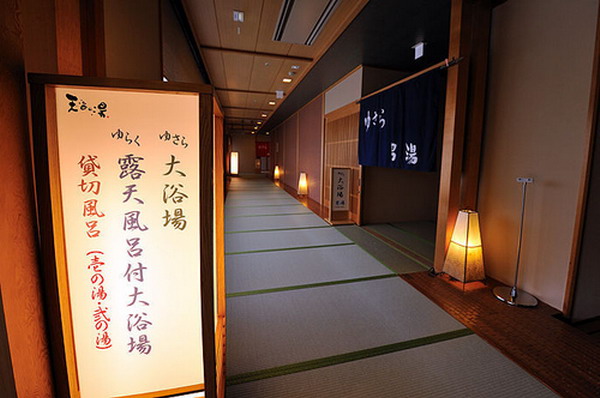 ゆさら
大浴場
ゆらく
露天風呂付大浴場
貸切風呂(壱の湯・弐の湯)
ゆさら
湯
大浴場